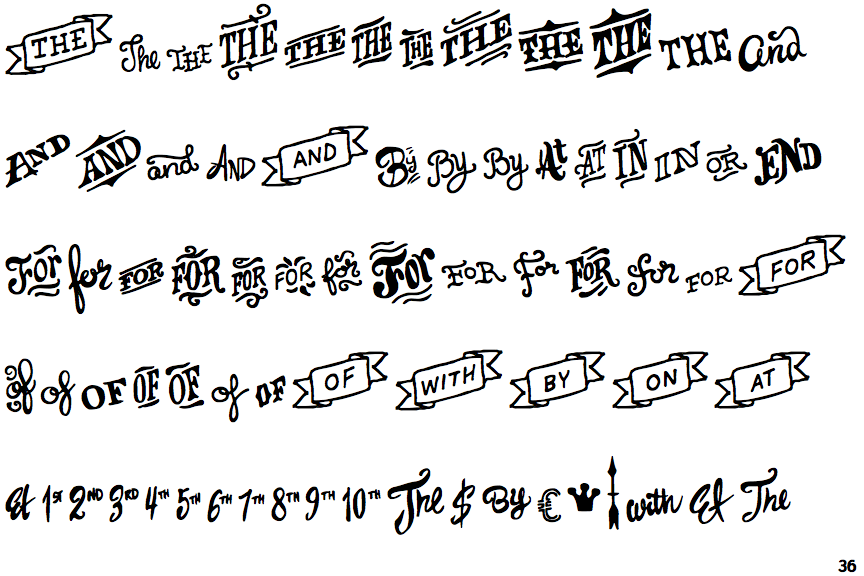 THE The THE THE THE THE THE THE THE THE THE and
AND AND and AND AND By By By At AT IN IN OR END
For for FOR FOR FOR FOR for For FOR For FOR for FOR FOR
of of OF OF OF of OF OF WITH BY ON AT
Et 1ST 2ND 3RD 4TH 5TH 6TH 7TH 8TH 9TH 10TH The $ By € with Et The
36